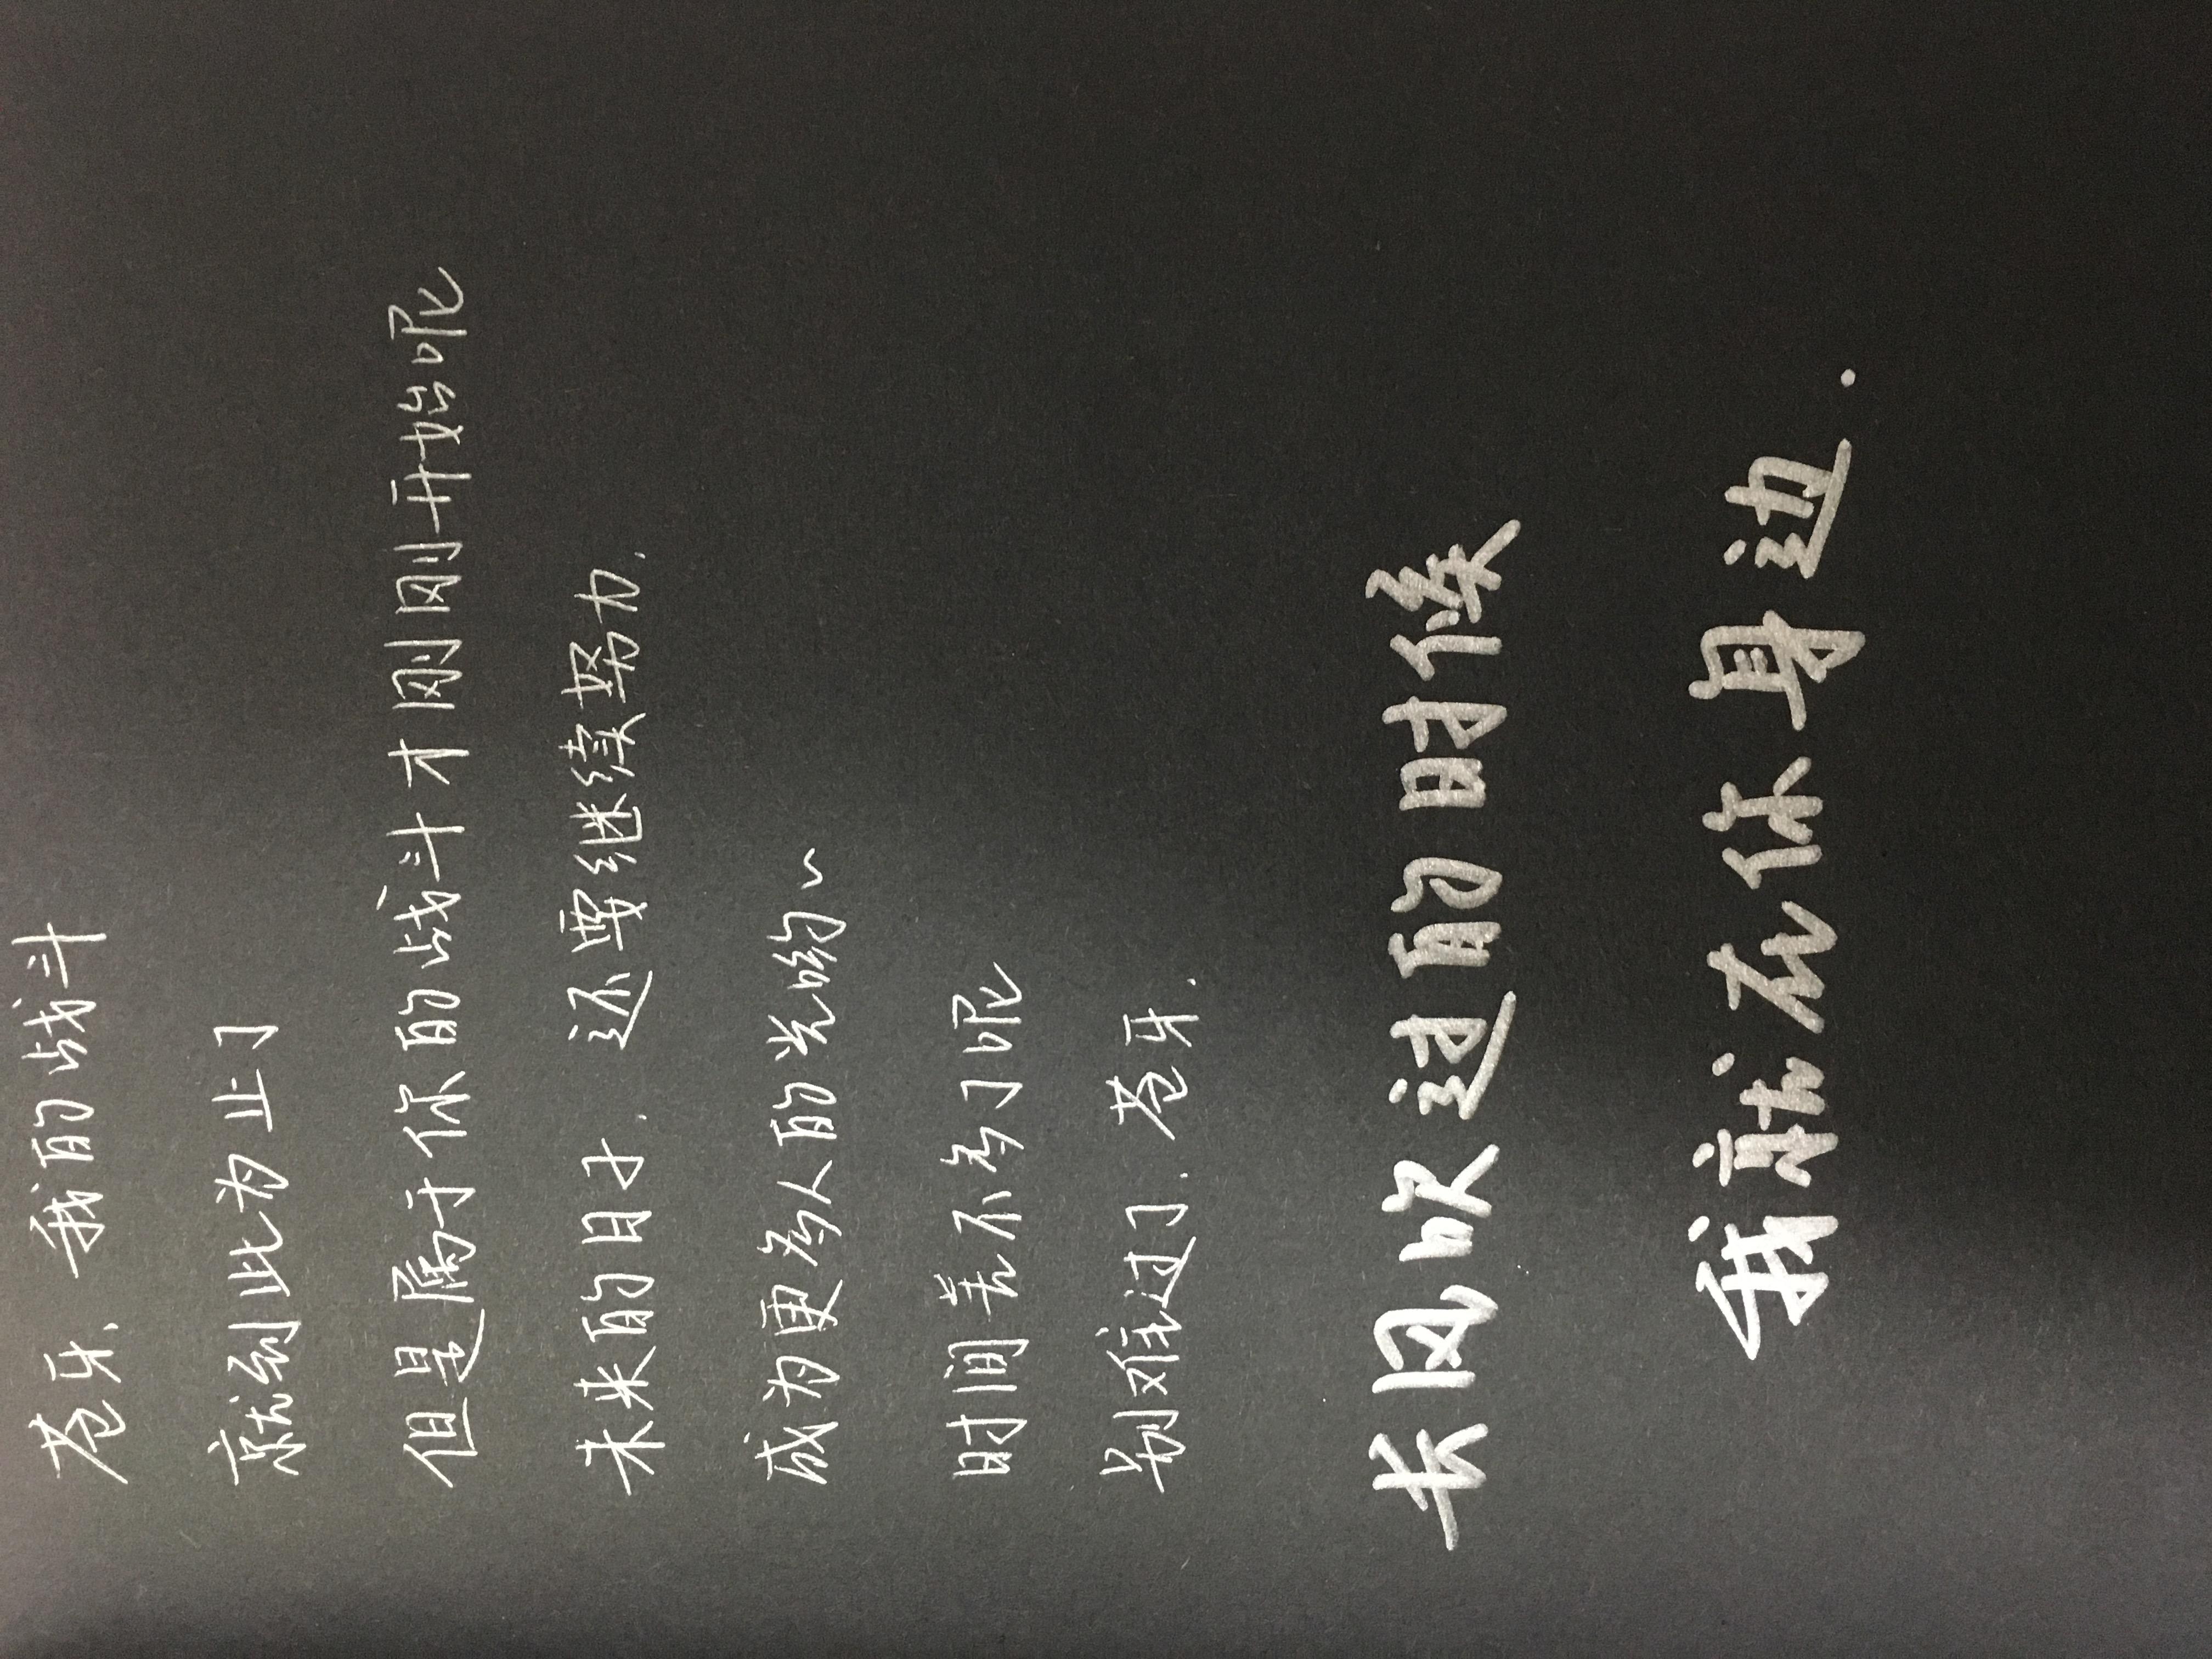 苍牙.我的战斗
就到此为止了
但是属于你的战斗才刚刚开始呢
未来的日子.还要继续努力.
成为更多人的光哟~
时间差不多了呢
别难过了.苍牙.
长风吹过的时候
我就在你身边.